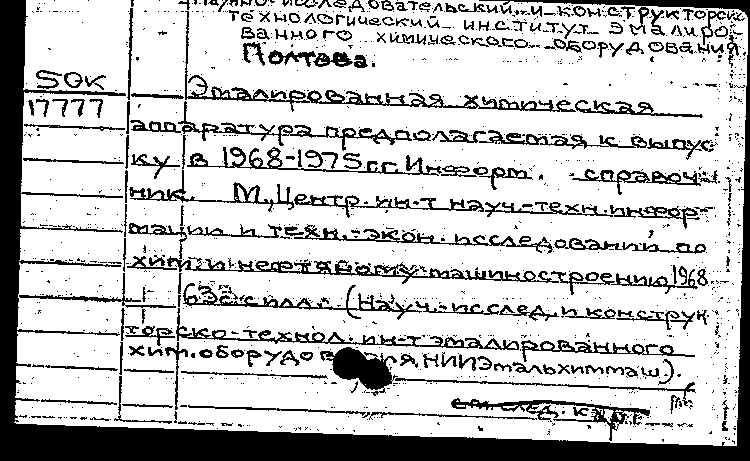 Научно-исследовательский и конструкторско-
технологический институт эмалиро-
ванного химического оборудования,
Полтава.
SOK
17777
Эмалированная химическая
аппаратура предполагаемая к выпус
ку в 1968-1975гг. Информ. справоч-
ник. М., Центр. ин-т науч.-техн. инфор-
мации и техн.-экон. исследований по
хим. и нефтяному машиностроению, 1968
63с с илл. (Науч.-исслед. и конструк
торско-технол. ин-т эмалированного
хим. оборудования, НИИЭмальхиммаш).
см. след. карт